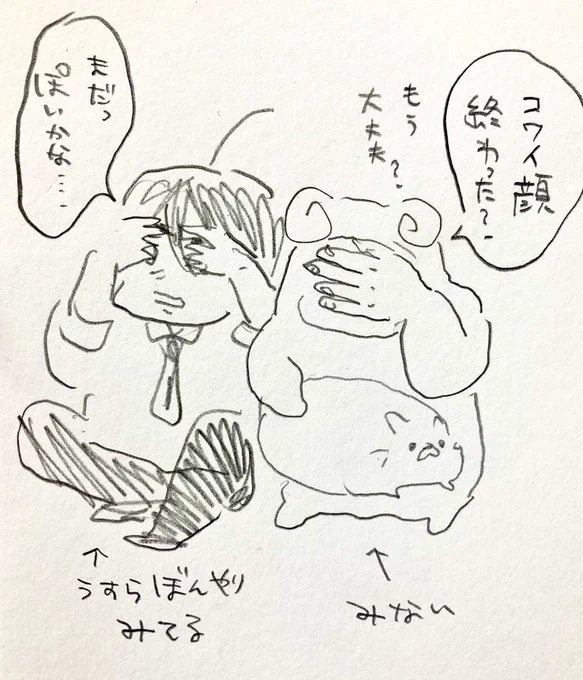 コワイ顔
終わった?
もう
大丈夫?
まだっ
ぽいかな…
↑
うすらぼんやり
みてる
↑
みない